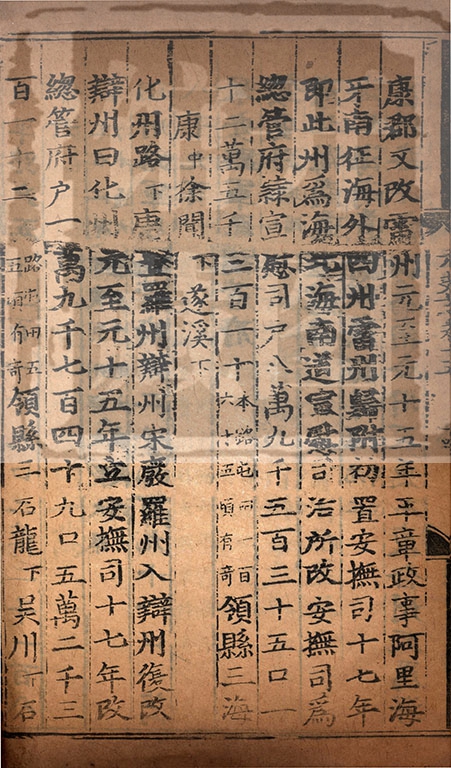 康郡又改雷州元至元十五年平章政事阿里海
牙南征海外四州雷州歸附初置安撫司十七年
即此州為海北海南道宣慰司治所改安撫司為
總管府隷宣慰司戸八萬九千五百三十五口一
十二萬五千三百一十本路屯田一百六十五頃有奇領縣三海
康中徐聞下遂溪下
化州路下唐置羅州辯州宋廢羅州入辯州復改
辯州曰化州元至元十五年立安撫司十七年改
總管府户一萬九千七百四十九口五萬二千三
百一十七路屯田五五頃有奇領縣三石龍下吳川下石